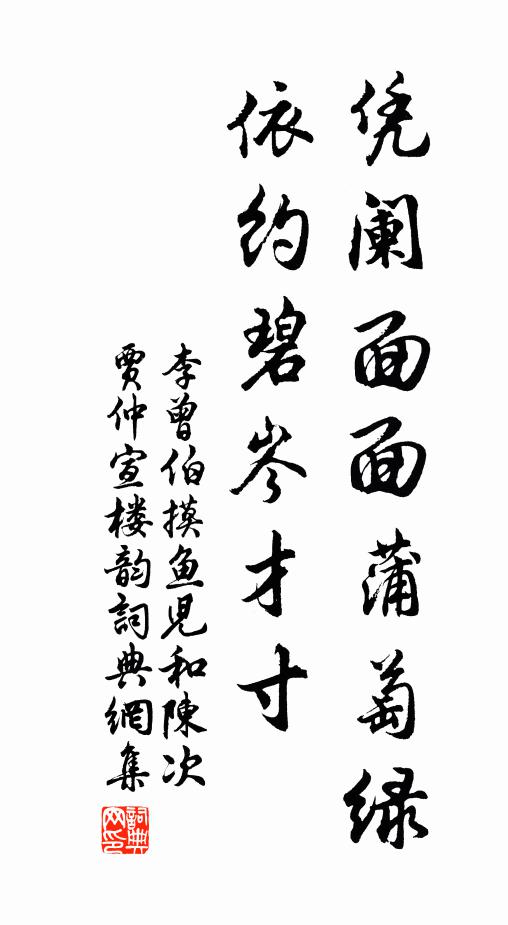 凭阑面面蒲萄绿
依约碧岑才寸
李曾伯摸鱼児和陳次
賈仲宣楼韵詞典網集
詞典网印